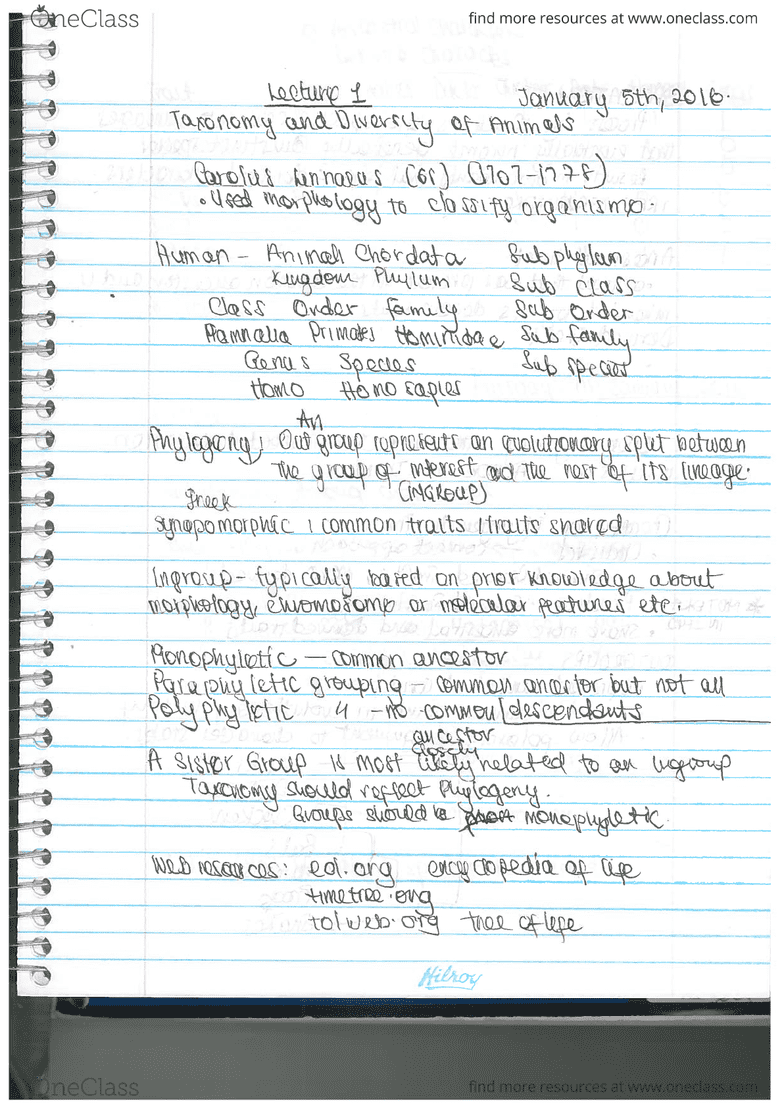 OneClass
find more resources at www.oneclass.com
Lecture 1 January 5th, 2016
Taxonomy and Diversity of Animals
Carolus Linnaeus (1707-1778)
• Used morphology to classify organisms.
Human - Animali Chordata Subphylum
Kingdom Phylum Sub class
Class Order family Sub order
Mammalia Primates Hominidae Sub family
Genus Species Sub species
Homo Homo sapies
An
Phylogeny; Outgroup represents an evolutionary split between
the group of interest and the rest of its lineage.
(INGROUP)
Greek
synapomorphic : common traits / traits shared
Ingroup - typically based on prior knowledge about
morphology, chromosome or molecular features etc.
Monophyletic — common ancestor
Paraphyletic grouping common ancestor but not all
Polyphyletic 4 - no common descendants
ancestor
closely
A Sister Group is most likely related to an ingroup
Taxonomy should reflect Phylogeny.
Groups should be monophyletic.
Web resources: eol.org encyclopedia of life
timetree.org
tolweb.org tree of life
Hilroy
OneClass
find more resources at www.oneclass.com